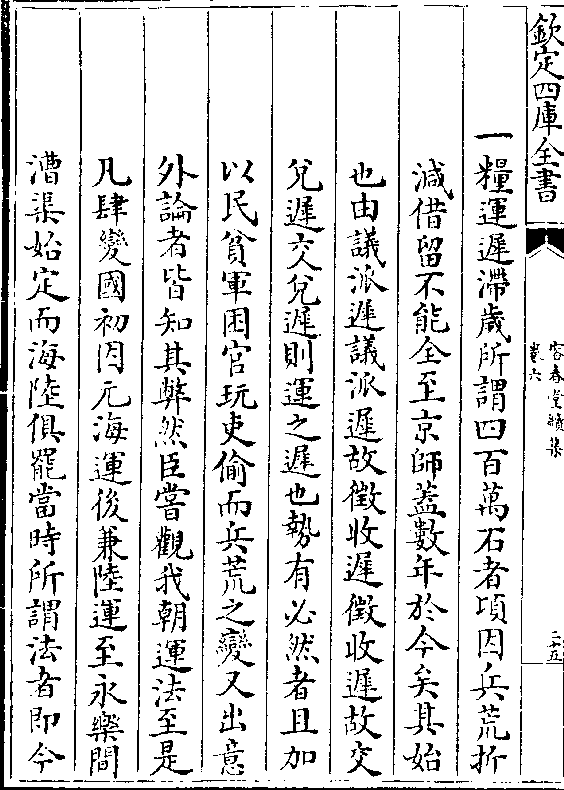 欽定四庫全書
容春堂續集
卷六
二十五
一糧運遲滯歲所謂四百萬石者項因兵荒折
減借留不能全至京師葢數年於今矣其始
也由議派遲議派遲故徵收遲徵收遲故交
兌遲交兌遲則運之遲也勢有必然者且加
以民貧軍困官玩吏偷而兵荒之變又出意
外論者皆知其弊然臣嘗觀我朝運法至是
凡肆變國初因元海運後兼陸運至永樂間
漕渠始定而海陸俱罷當時所謂法者即今